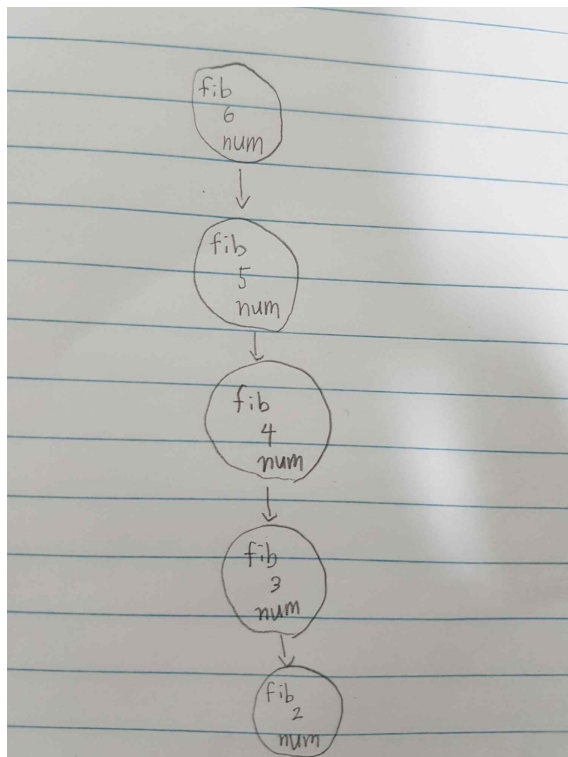 fib
6
num
fib
5
num
fib
4
num
fib
3
num
fib
2
num